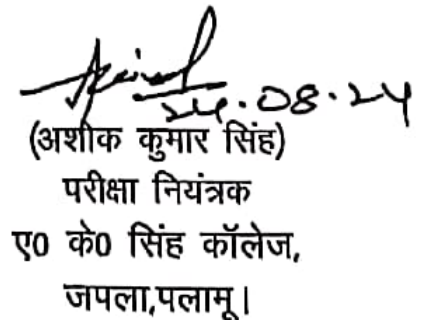 24.08.24
(अशोक कुमार सिंह)
परीक्षा नियंत्रक
ए0 के0 सिंह कॉलेज,
जपला,पलामू।